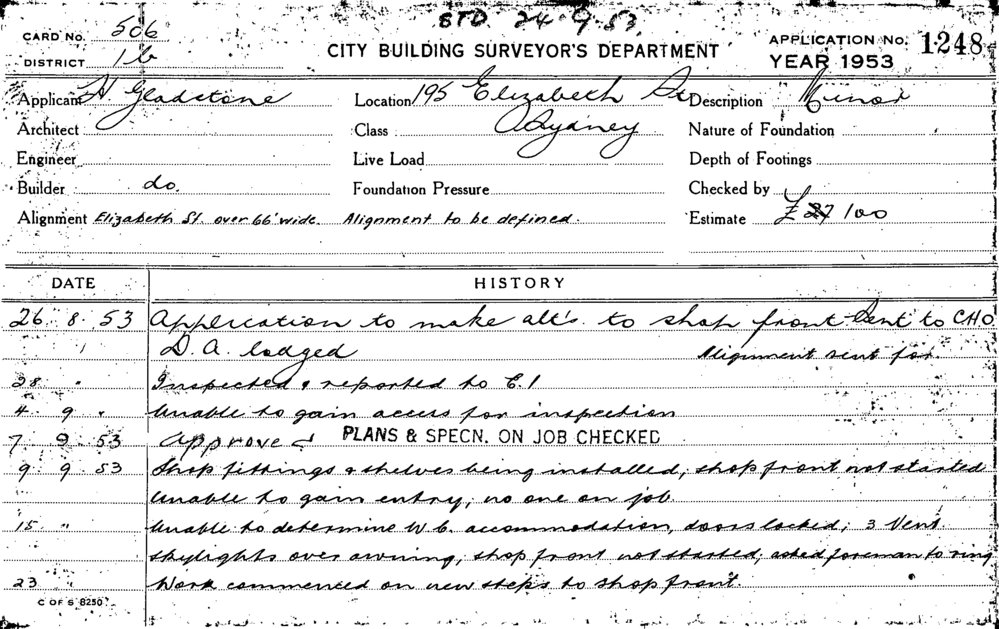 STD. 24.9.53.
CARD No. 506
DISTRICT 1b
CITY BUILDING SURVEYOR'S DEPARTMENT
APPLICATION No. 1248
YEAR 1953
Applicant H Gladstone Location 195 Elizabeth St Description Minor
Architect Class Sydney Nature of Foundation
Engineer Live Load Depth of Footings
Builder do. Foundation Pressure Checked by
Alignment Elizabeth St. over 66' wide. Alignment to be defined. Estimate £ 27 100
DATE HISTORY
26 8 53 Application to make alt's. to shop front Sent to CHO
D.A. lodged Alignment sent for
28 " Inspected & reported to E.I
4 9 " Unable to gain access for inspection
7 9 53 Approved PLANS & SPECN. ON JOB CHECKED
9 9 53 Shop fittings & shelves being installed, shop front not started
Unable to gain entry, no one on job
15 " Unable to determine W.C. accommodation, doors locked; 3 Vent
skylights over awning, shop front not started, asked foreman to ring
23 " Work commenced on new steps to shop front
C OF S 8250